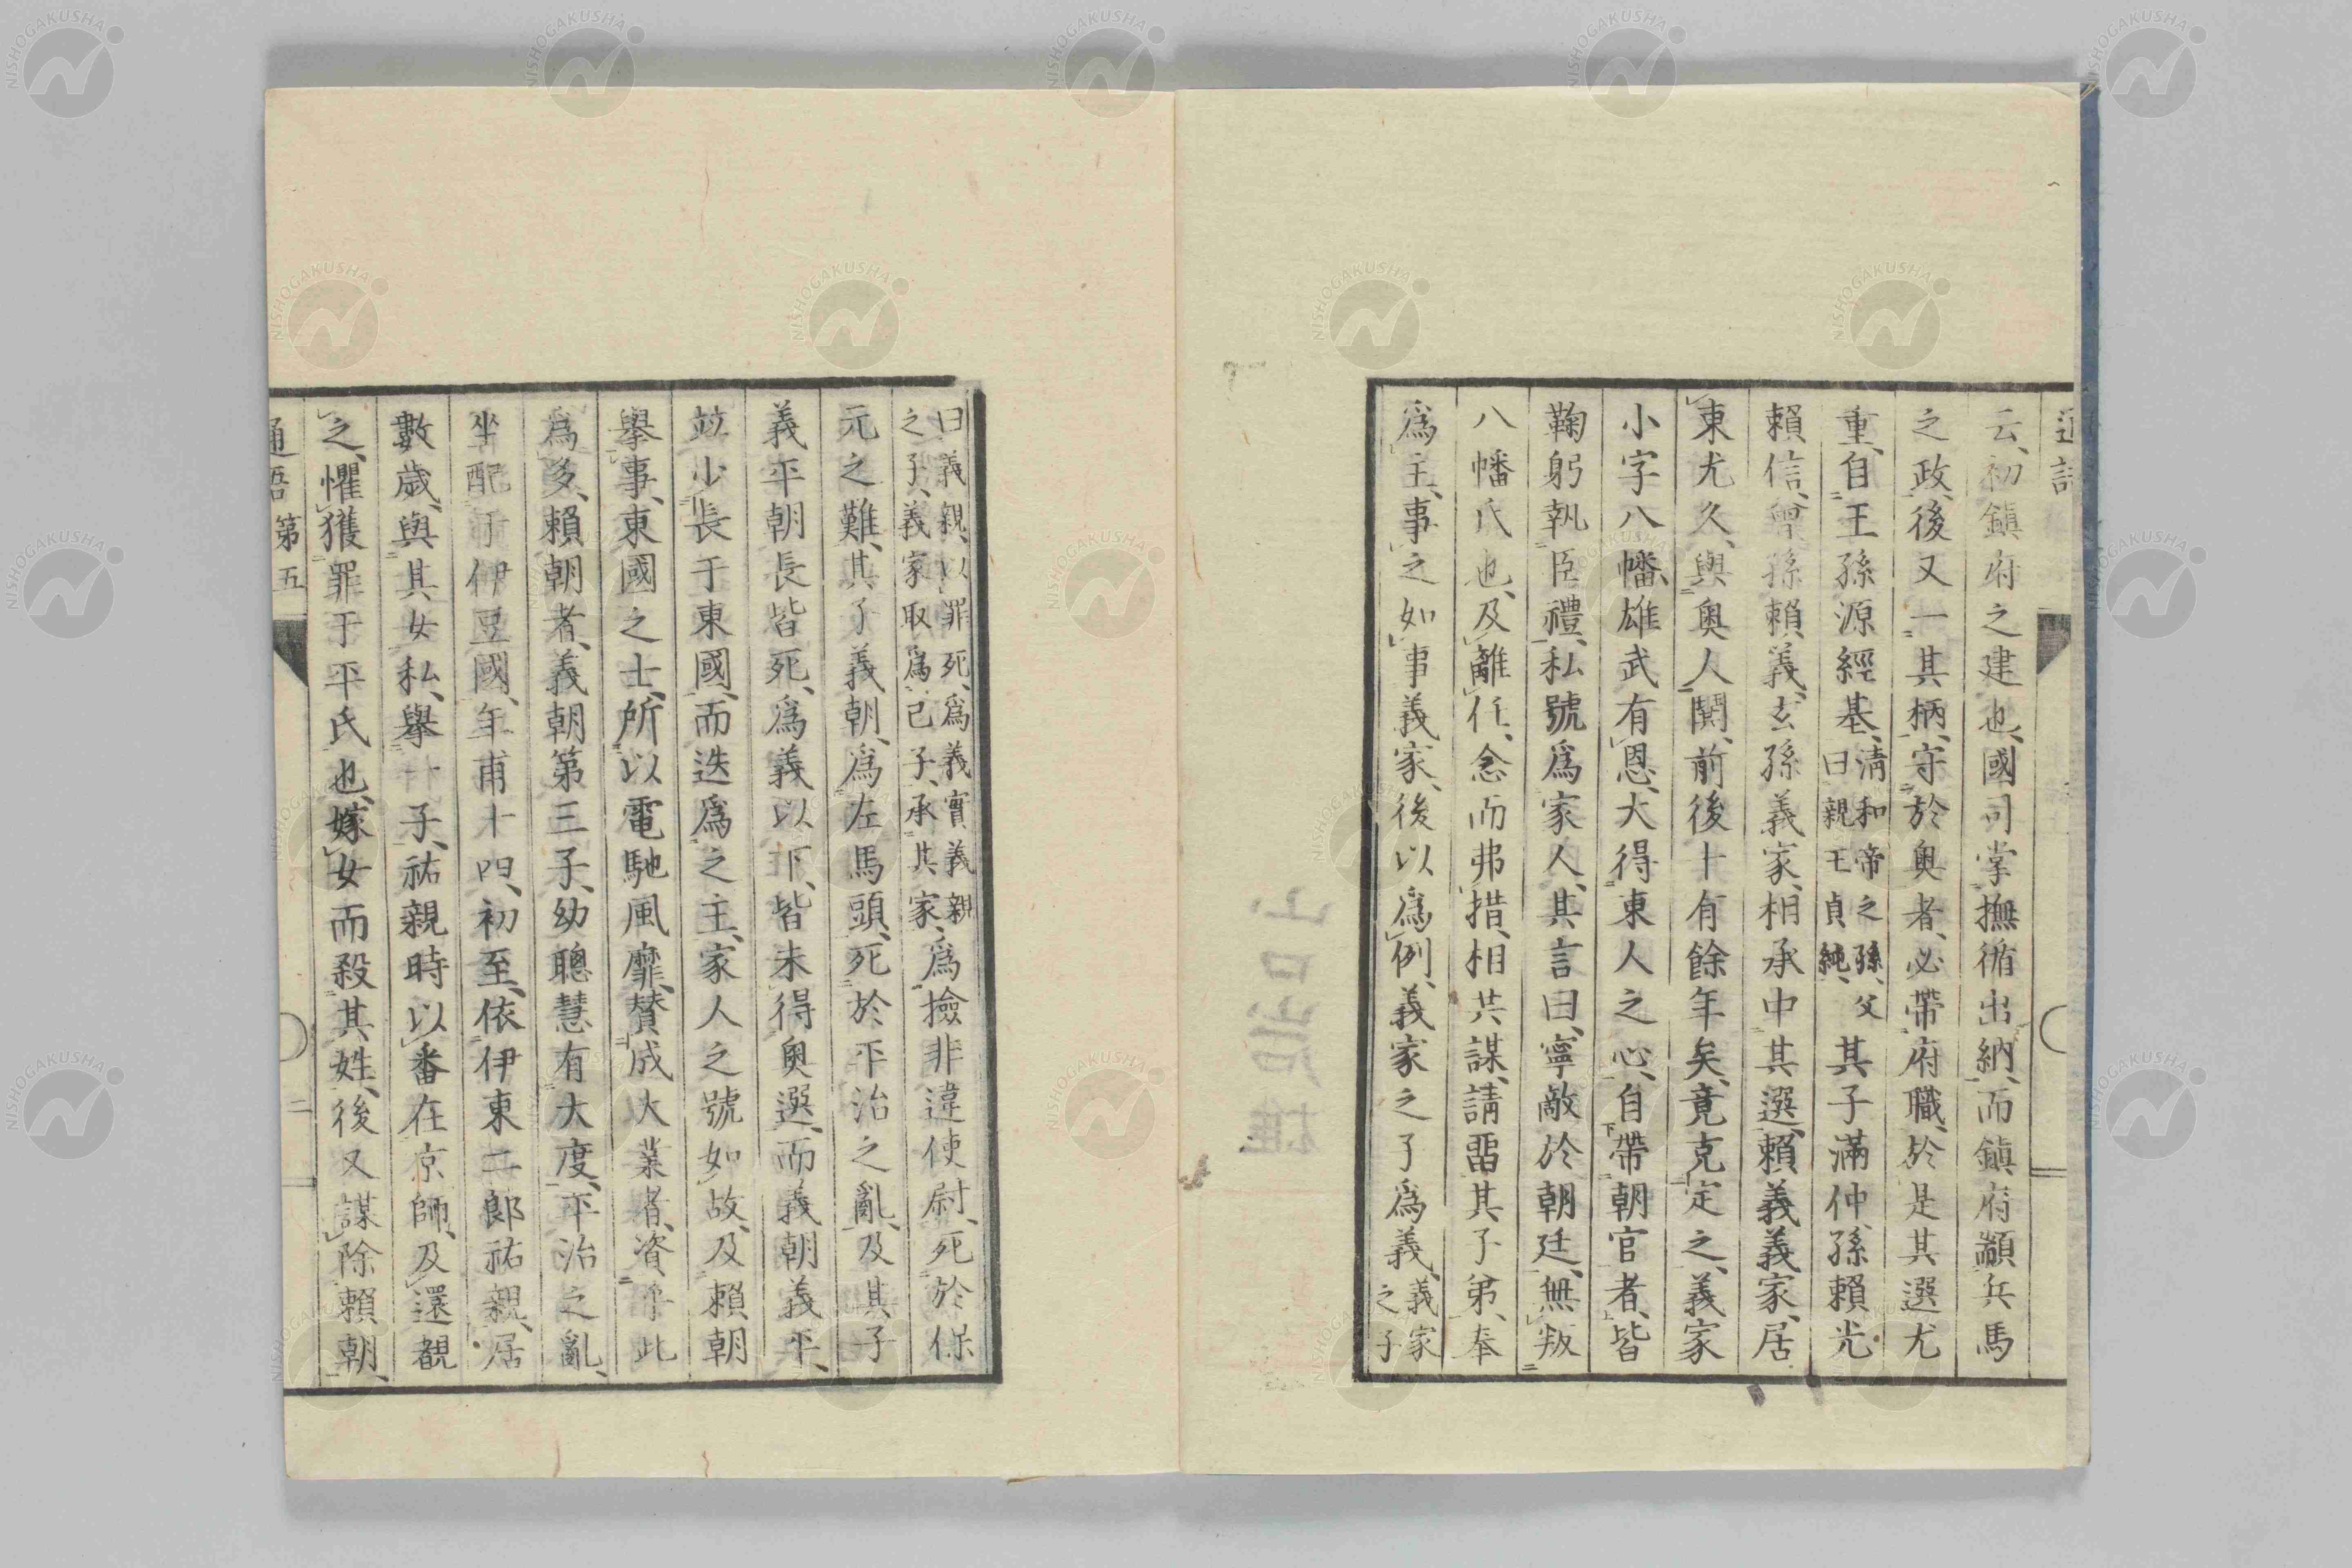 云、初鎮府之建也、國司掌撫循出納、而鎮府顓兵馬
之政、後又一其柄、守於奥者、必帶府職、於是其選尤
重、自王孫源經基、清和帝之孫、父曰親王貞純、其子滿仲、孫賴光
賴信、曾孫賴義、玄孫義家、相承中其選、賴義義家、居
東尤久、與奥人鬪、前後十有餘年矣、竟克定之、義家
小字八幡、雄武有恩、大得東人之心、自帶朝官者、皆
鞠躬執臣禮、私號爲家人、其言曰、寧敵於朝廷、無叛
八幡氏也、及離任、念而弗措、相共謀、請畱其子弟、奉
爲主、事之如事義家、後以爲例、義家之子爲義、義家之子
曰義親、以罪死、爲義實義親之子、義家取爲己子、承其家、爲撿非違使尉、死於保
元之難、其子義朝、爲左馬頭、死於平治之亂、及其子
義平朝長皆死、爲義以下、皆未得奥選、而義朝義平、
竝少長于東國、而迭爲之主、家人之號如故、及賴朝
擧事、東國之士、所以電馳風靡、贊成大業者、資乎此
爲多、賴朝者、義朝第三子、幼聰慧有大度、平治之亂、
坐配于伊豆國、年甫十四、初至、依伊東二郎祐親、居
數歲、與其女私、擧一子、祐親時以番在京師、及還覩
之、懼獲罪于平氏也、嫁女而殺其姓、後又謀除賴朝、
通語 第五
二
NISHOGAKUSHA